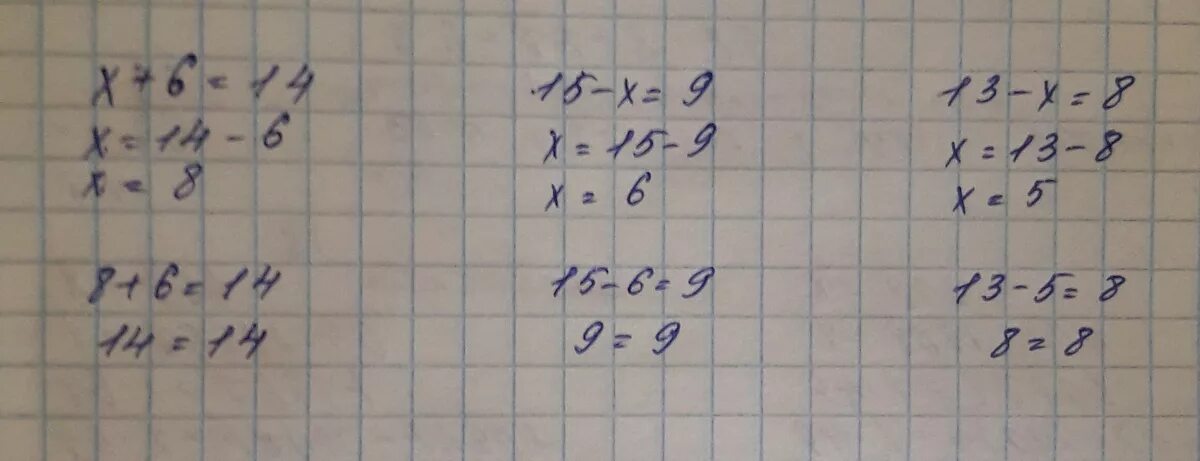 x + 6 = 14
x = 14 - 6
x = 8
8 + 6 = 14
14 = 14
15 - x = 9
x = 15 - 9
x = 6
15 - 6 = 9
9 = 9
13 - x = 8
x = 13 - 8
x = 5
13 - 5 = 8
8 = 8